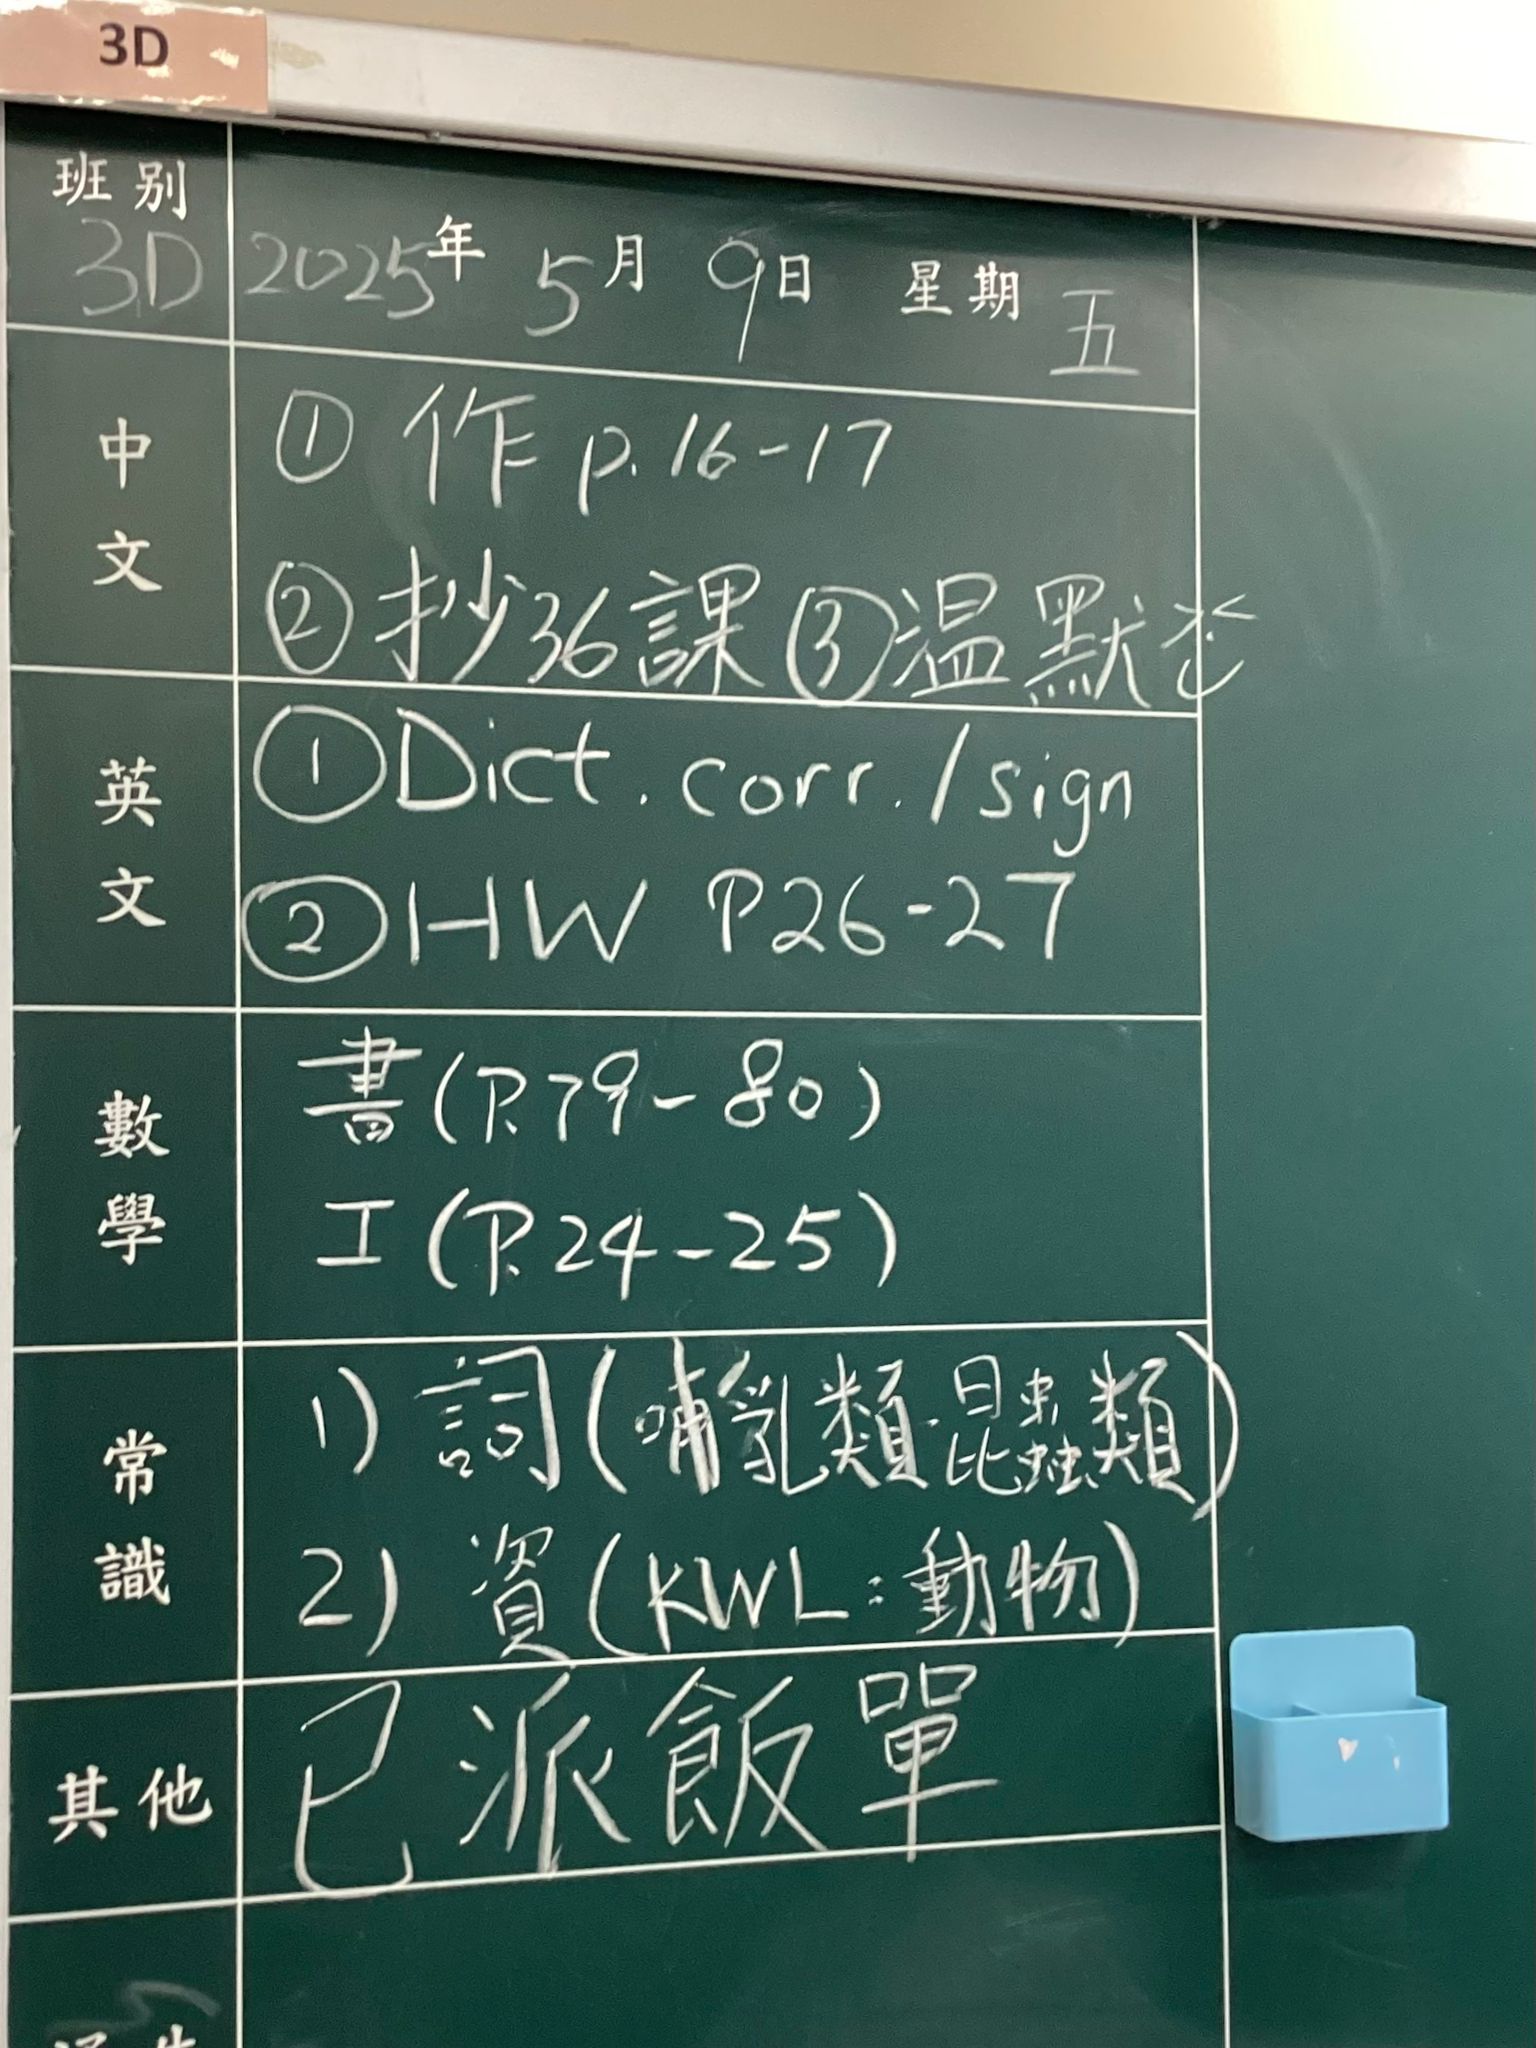 3D
班別
3D 2025年 5月 9日 星期 五
中文
① 作 p.16-17
② 抄36課 ③ 温默
英文
① Dict. corr. / sign
② HW P26-27
數學
書(P.79-80)
工(P.24-25)
常識
1) 詞(哺乳類.昆蟲類)
2) 資(KWL:動物)
其他
已派飯單